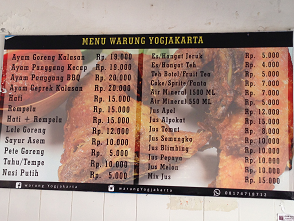 MENU WARUNG YOGJAKARTA
Ayam Goreng Kalasan Rp. 19.000
Ayam Panggang Kecap Rp. 19.000
Ayam Panggang BBQ Rp. 20.000
Ayam Geprek Kalasan Rp. 20.000
Hati Rp. 15.000
Rempela Rp. 15.000
Hati + Rempela Rp. 15.000
Lele Goreng Rp. 12.000
Sayur Asem Rp. 10.000
Pete Goreng Rp. 10.000
Tahu/Tempe Rp. 10.000
Nasi Putih Rp. 5.000
Es/Hangat Jeruk Rp. 5.000
Es/Hangat Teh Rp. 4.000
Teh Botol/Fruit Tea Rp. 5.000
Coke/Sprite/Fanta Rp. 7.000
Air Mineral ML Rp.
Air Mineral ML Rp.
Jus Apel Rp. 12.000
Jus Alpokat Rp.
Jus Tomat Rp.
Jus Semangka Rp.
Jus Blimbing Rp.
Jus Pepaya Rp.
Jus Melon Rp.
Mix Jus Rp. 15.000
warung Yogjakarta
warungyogjakarta